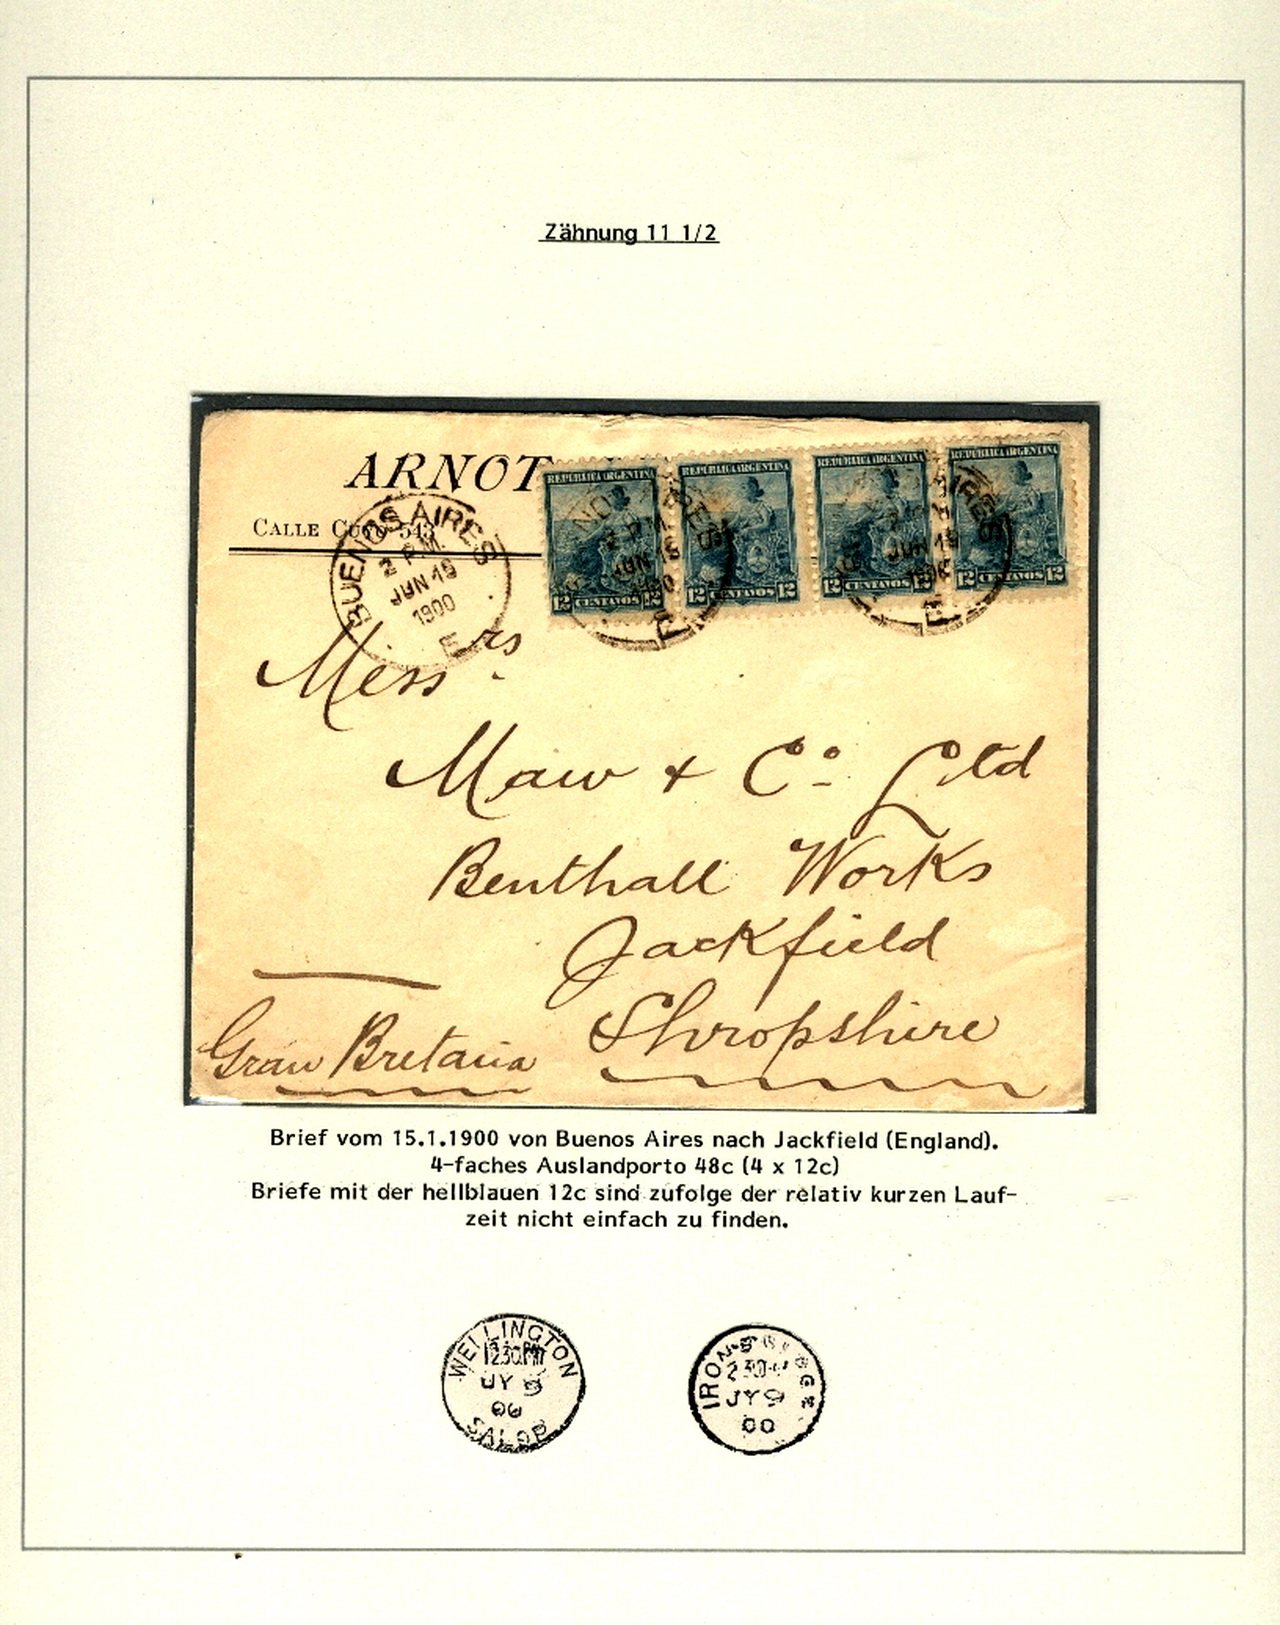 Zähnung 11 1/2
ARNOT
CALLE CUYO 543
BUENOS AIRES
2 P.M.
JUN 15
1900
E
REPUBLICA ARGENTINA
12 CENTAVOS 12
REPUBLICA ARGENTINA
12 CENTAVOS 12
REPUBLICA ARGENTINA
12 CENTAVOS 12
REPUBLICA ARGENTINA
12 CENTAVOS 12
2 P.M.
JUN 15
E
JUN 15
E
Messrs
Maw & Co Ltd
Benthall Works
Jackfield
Shropshire
Gran Bretaña
Brief vom 15.1.1900 von Buenos Aires nach Jackfield (England).
4-faches Auslandporto 48c (4 x 12c)
Briefe mit der hellblauen 12c sind zufolge der relativ kurzen Lauf-
zeit nicht einfach zu finden.
WELLINGTON
1230PM
JY 9
00
SALOP
IRONBRIDGE
230
JY 9
00